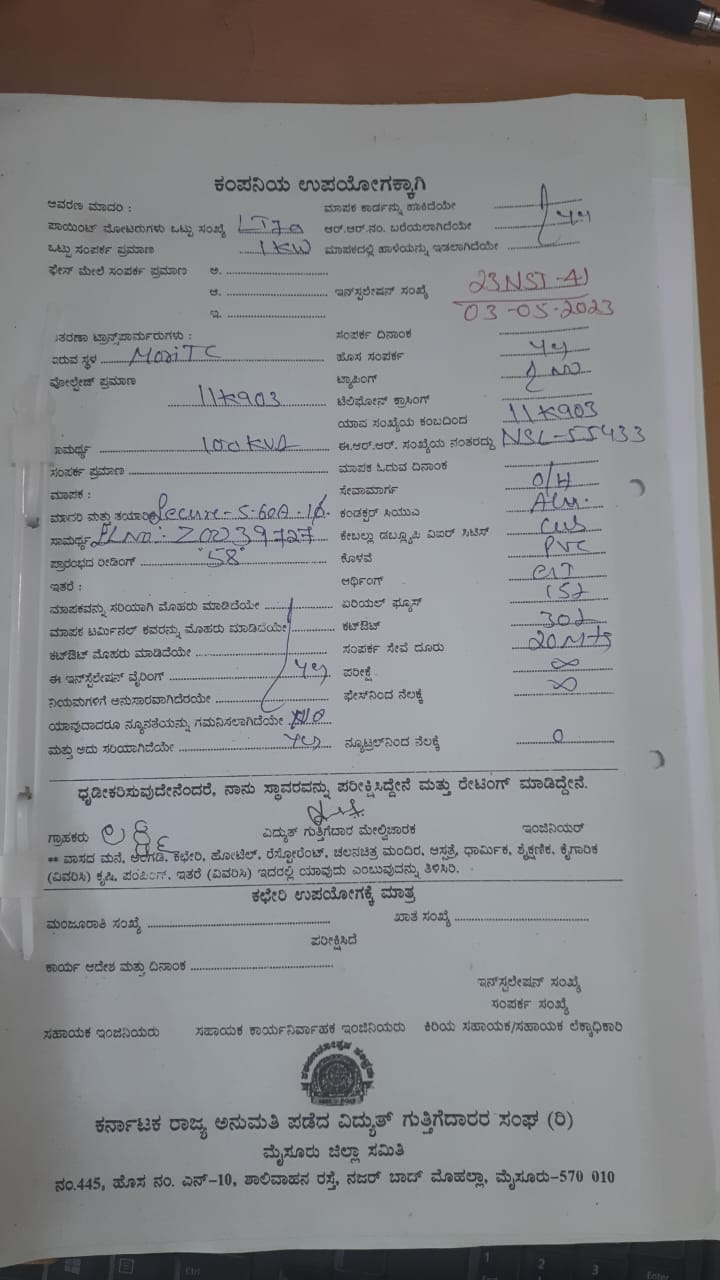 ಕಂಪನಿಯ ಉಪಯೋಗಕ್ಕಾಗಿ
ಆವರಣ ಮಾದರಿ : ಮಾಪಕ ಕಾರ್ಡನ್ನು ಹಾಕಿದೆಯೇ
ಪಾಯಿಂಟ್ ಮೋಟರುಗಳು ಒಟ್ಟು ಸಂಖ್ಯೆ LT7a ಆರ್.ಆರ್.ನಂ. ಬರೆಯಲಾಗಿದೆಯೇ yes
ಒಟ್ಟು ಸಂಪರ್ಕ ಪ್ರಮಾಣ 1KW ಮಾಪಕದಲ್ಲಿ ಹಾಳೆಯನ್ನು ಇಡಲಾಗಿದೆಯೇ
ಫೇಸ್ ಮೇಲೆ ಸಂಪರ್ಕ ಪ್ರಮಾಣ ಅ.
ಆ. ಇನ್‌ಸ್ಟಲೇಷನ್ ಸಂಖ್ಯೆ 23NST-41
ಇ. 03-05-2023
ತರಣಾ ಟ್ರಾನ್ಸ್‌ಫಾರ್ಮರುಗಳು : ಸಂಪರ್ಕ ದಿನಾಂಕ
ಇರುವ ಸ್ಥಳ TC ಹೊಸ ಸಂಪರ್ಕ yes
ವೋಲ್ಟೇಜ್ ಪ್ರಮಾಣ ಟ್ಯಾಪಿಂಗ್ NO
11K903 ಟೆಲಿಫೋನ್ ಕ್ರಾಸಿಂಗ್
ಯಾವ ಸಂಖ್ಯೆಯ ಕಂಬದಿಂದ 11K903
ಸಾಮರ್ಥ್ಯ 100KVA ಈ.ಆರ್.ಆರ್. ಸಂಖ್ಯೆಯ ನಂತರದ್ದು NSL-55433
ಸಂಪರ್ಕ ಪ್ರಮಾಣ ಮಾಪಕ ಓದುವ ದಿನಾಂಕ
ಮಾಪಕ : ಸೇವಾಮಾರ್ಗ O/H
ಮಾದರಿ ಮತ್ತು ತಯಾರಿ Secure-5-60A-1ϕ. ಕಂಡಕ್ಟರ್ ಸಿಯುಎ Alu.
ಸಾಮರ್ಥ್ಯ Sl No: Z0239727 ಕೇಬಲ್ಲು ಡಬ್ಲ್ಯೂಪಿ ವಿಐರ್ ಸಿಟಿಸ್
ಪ್ರಾರಂಭದ ರೀಡಿಂಗ್ "58" ಕೊಳವೆ PVC
ಇತರೆ : ಆರ್ಥಿಂಗ್
ಮಾಪಕವನ್ನು ಸರಿಯಾಗಿ ಮೊಹರು ಮಾಡಿದೆಯೇ ಏರಿಯಲ್ ಫ್ಯೂಸ್
ಮಾಪಕ ಟರ್ಮಿನಲ್ ಕವರನ್ನು ಮೊಹರು ಮಾಡಿದೆಯೇ ಕಟ್‌ಔಟ್
ಕಟ್‌ಔಟ್ ಮೊಹರು ಮಾಡಿದೆಯೇ ಸಂಪರ್ಕ ಸೇವೆ ದೂರು 20Mts
ಈ ಇನ್‌ಸ್ಟಲೇಷನ್ ವೈರಿಂಗ್ yes ಪರೀಕ್ಷೆ ∞
ನಿಯಮಗಳಿಗೆ ಅನುಸಾರವಾಗಿದೆರಯೇ ಫೇಸ್‌ನಿಂದ ನೆಲಕ್ಕೆ ∞
ಯಾವುದಾದರೂ ನ್ಯೂನತೆಯನ್ನು ಗಮನಿಸಲಾಗಿದೆಯೇ NO
ಮತ್ತು ಅದು ಸರಿಯಾಗಿದೆಯೇ Yes ನ್ಯೂಟ್ರಲ್‌ನಿಂದ ನೆಲಕ್ಕೆ 0
ಧೃಡೀಕರಿಸುವುದೇನೆಂದರೆ, ನಾನು ಸ್ಥಾವರವನ್ನು ಪರೀಕ್ಷಿಸಿದ್ದೇನೆ ಮತ್ತು ರೇಟಿಂಗ್ ಮಾಡಿದ್ದೇನೆ.
ಗ್ರಾಹಕರು ವಿದ್ಯುತ್ ಗುತ್ತಿಗೆದಾರ ಮೇಲ್ವಿಚಾರಕ ಇಂಜಿನಿಯರ್
** ವಾಸದ ಮನೆ, ಅಂಗಡಿ, ಕಛೇರಿ, ಹೋಟೆಲ್, ರೆಸ್ಟೋರೆಂಟ್, ಚಲನಚಿತ್ರ ಮಂದಿರ, ಆಸ್ಪತ್ರೆ, ಧಾರ್ಮಿಕ, ಶೈಕ್ಷಣಿಕ, ಕೈಗಾರಿಕ
(ವಿವರಿಸಿ) ಕೃಷಿ, ಪಂಪಿಂಗ್, ಇತರೆ (ವಿವರಿಸಿ) ಇದರಲ್ಲಿ ಯಾವುದು ಎಂಬುವುದನ್ನು ತಿಳಿಸಿರಿ.
ಕಛೇರಿ ಉಪಯೋಗಕ್ಕೆ ಮಾತ್ರ
ಮಂಜೂರಾತಿ ಸಂಖ್ಯೆ ಖಾತೆ ಸಂಖ್ಯೆ
ಪರೀಕ್ಷಿಸಿದೆ
ಕಾರ್ಯ ಆದೇಶ ಮತ್ತು ದಿನಾಂಕ
ಇನ್‌ಸ್ಟಲೇಷನ್ ಸಂಖ್ಯೆ
ಸಂಪರ್ಕ ಸಂಖ್ಯೆ
ಸಹಾಯಕ ಇಂಜಿನಿಯರು ಸಹಾಯಕ ಕಾರ್ಯನಿರ್ವಾಹಕ ಇಂಜಿನಿಯರು ಕಿರಿಯ ಸಹಾಯಕ/ಸಹಾಯಕ ಲೆಕ್ಕಾಧಿಕಾರಿ
ಕರ್ನಾಟಕ ರಾಜ್ಯ ಅನುಮತಿ ಪಡೆದ ವಿದ್ಯುತ್ ಗುತ್ತಿಗೆದಾರರ ಸಂಘ (ರಿ)
ಮೈಸೂರು ಜಿಲ್ಲಾ ಸಮಿತಿ
ನಂ.445, ಹೊಸ ನಂ. ಎನ್-10, ಶಾಲಿವಾಹನ ರಸ್ತೆ, ನಜರ್ ಬಾದ್ ಮೊಹಲ್ಲಾ, ಮೈಸೂರು-570 010